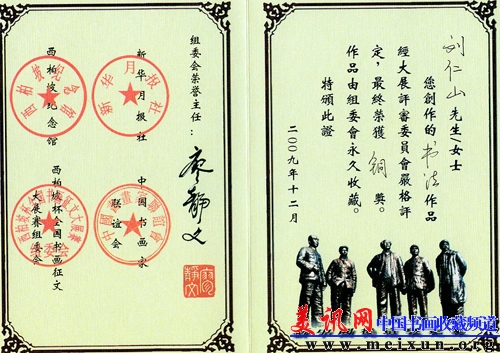 刘仁山先生/女士
您創作的书法作品
經大展評審委員會嚴格評
定，最終榮獲銅獎。
作品由組委會永久收藏。
特頒此證
二〇〇九年十二月
组委会荣誉主任：廖静文
新华月报社
西柏坡纪念馆
中国书画家
联谊会
西柏坡杯全国书画征文
大展赛组委会
新华月报社
西柏坡纪念馆
廖静文
美讯网 中国书画收藏频道
www.meixun.org